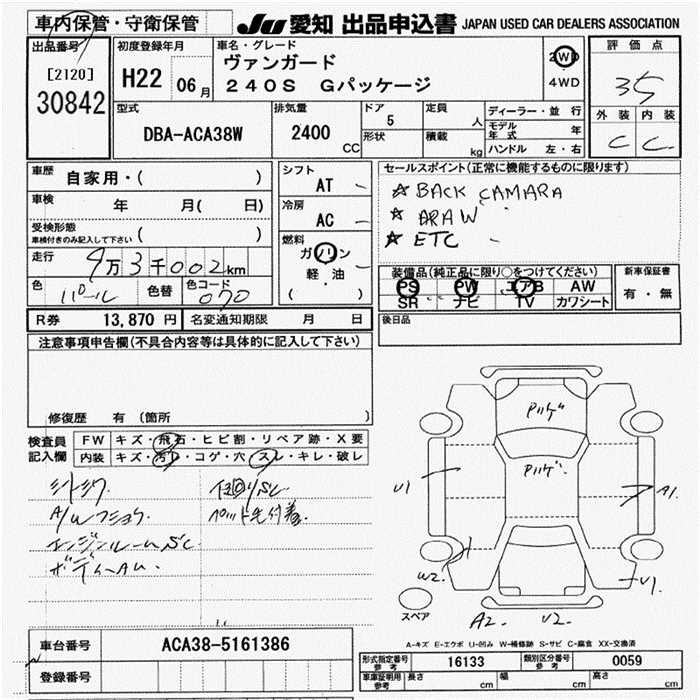 車内保管・守衛保管
JU 愛知 出品申込書 JAPAN USED CAR DEALERS ASSOCIATION
出品番号
[2120]
30842
初度登録年月
H22 06月
車名・グレード
ヴァンガード
240S Gパッケージ
2WD
4WD
評価点
35
外装 内装
C C
型式
DBA-ACA38W
排気量
2400 CC
ドア
5
形状
定員
人
積載
kg
ディーラー・並行
モデル年式 年
ハンドル 左・右
車歴
自家用・( )
車検
年 月( 日)
受検形態
車検付きのみ記入して下さい ( )
走行
9万3千002km
色
パール
色替
色コード
070
シフト
AT
冷房
AC
燃料
ガソリン
軽・油
( )
セールスポイント(正常に機能するものに限ります)
☆BACK CAMARA
☆ARAW
☆ETC
装備品(純正品に限り○をつけてください)
PS PW エアB AW
SR ナビ TV カワシート
新車保証書
有・無
R券 13,870円 名変通知期限 月 日
後日品
注意事項申告欄(不具合内容等は具体的に記入して下さい)
修復歴 有 (箇所 )
検査員記入欄
FW キズ・飛石・ヒビ割・リペア跡・X要
内装 キズ・汚れ・コゲ・穴・スレ・キレ・破レ
シートシワ.
A/Wフショク.
エンジンルームSC
ボディーAU.
下回りSC.
ペット毛付着.
Pリゲ
Pリゲ
U1
A1.
W2.
U1.
A2.
U2.
スペア
A-キズ E-エクボ U-凹み W-補修跡 S-サビ C-腐食 XX-交換済
車台番号 ACA38-5161386
登録番号
形式指定番号 参考 16133 類別区分番号 参考 0059
車庫証明用 参考 長さ cm 幅 cm 高さ cm